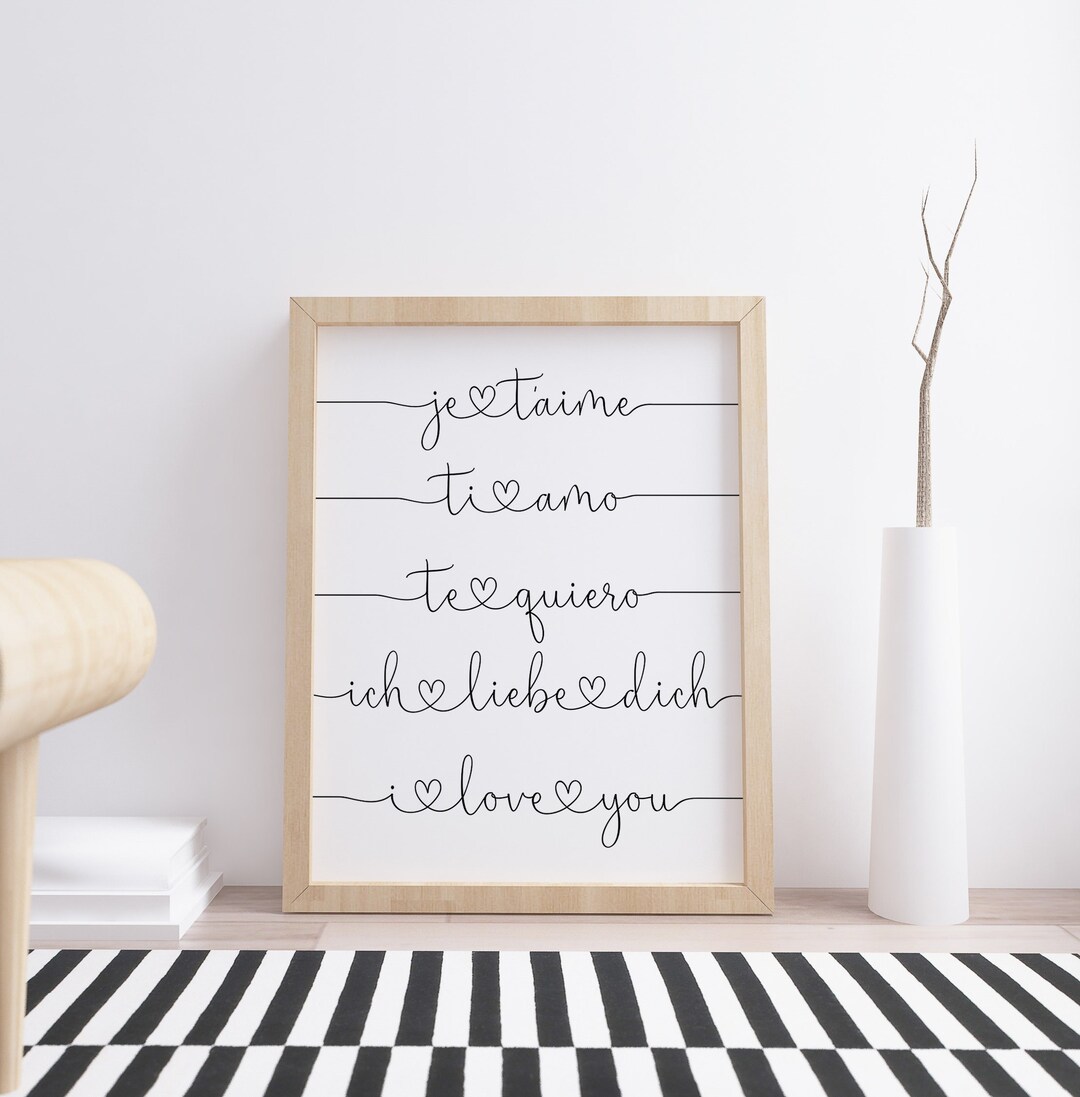 je t'aime
ti amo
te quiero
ich liebe dich
i love you